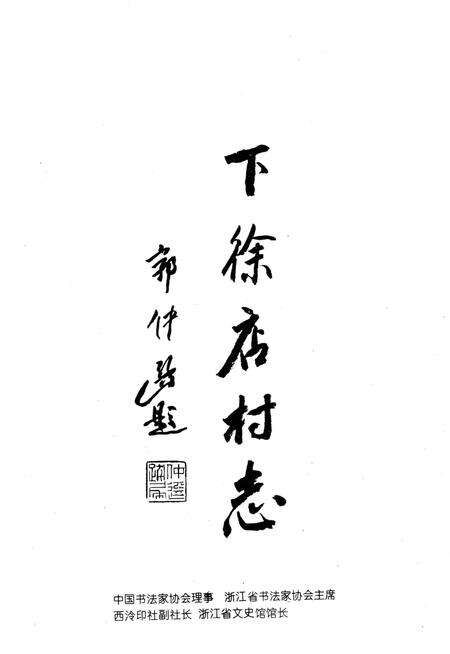 下徐店村志
郭仲选题
仲選
中国书法家协会理事 浙江省书法家协会主席
西泠印社副社长 浙江省文史馆馆长